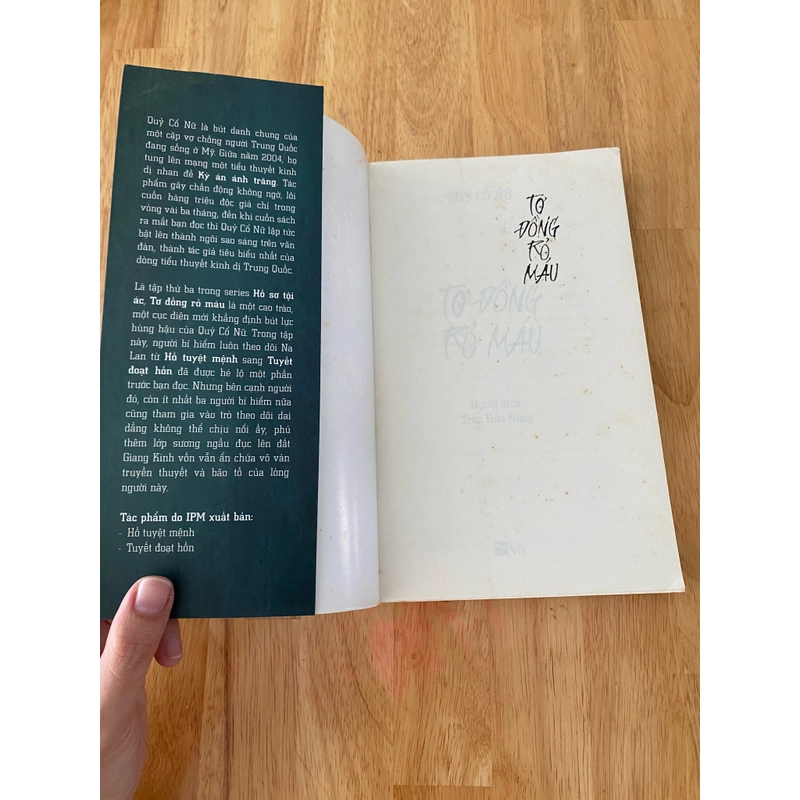 Quỷ Cổ Nữ là bút danh chung của
một cặp vợ chồng người Trung Quốc
đang sống ở Mỹ. Giữa năm 2004, họ
tung lên mạng một tiểu thuyết kinh
dị nhan đề Kỳ án ánh trăng. Tác
phẩm gây chấn động không ngờ, lôi
cuốn hàng triệu độc giả chỉ trong
vòng vài ba tháng, đến khi cuốn sách
ra mắt bạn đọc thì Quỷ Cổ Nữ lập tức
bật lên thành ngôi sao sáng trên văn
đàn, thành tác giả tiêu biểu nhất của
dòng tiểu thuyết kinh dị Trung Quốc.
Là tập thứ ba trong series Hồ sơ tội
ác, Tơ đồng rỏ máu là một cao trào,
một cục diện mới khẳng định bút lực
hùng hậu của Quỷ Cổ Nữ. Trong tập
này, người bí hiểm luôn theo dõi Na
Lan từ Hồ tuyệt mệnh sang Tuyết
đoạt hồn đã được hé lộ một phần
trước bạn đọc. Nhưng bên cạnh người
đó, còn ít nhất ba người bí hiểm nữa
cũng tham gia vào trò theo dõi dai
dẳng không thể chịu nổi ấy, phủ
thêm lớp sương ngầu đục lên đất
Giang Kinh vốn vẫn ẩn chứa vô vàn
truyền thuyết và bão tố của lòng
người này.
Tác phẩm do IPM xuất bản:
- Hồ tuyệt mệnh
- Tuyết đoạt hồn
TƠ
ĐỒNG
RỎ
MÁU
TƠ ĐỒNG
RỎ MÁU
Người dịch:
Trần Hữu Nùng